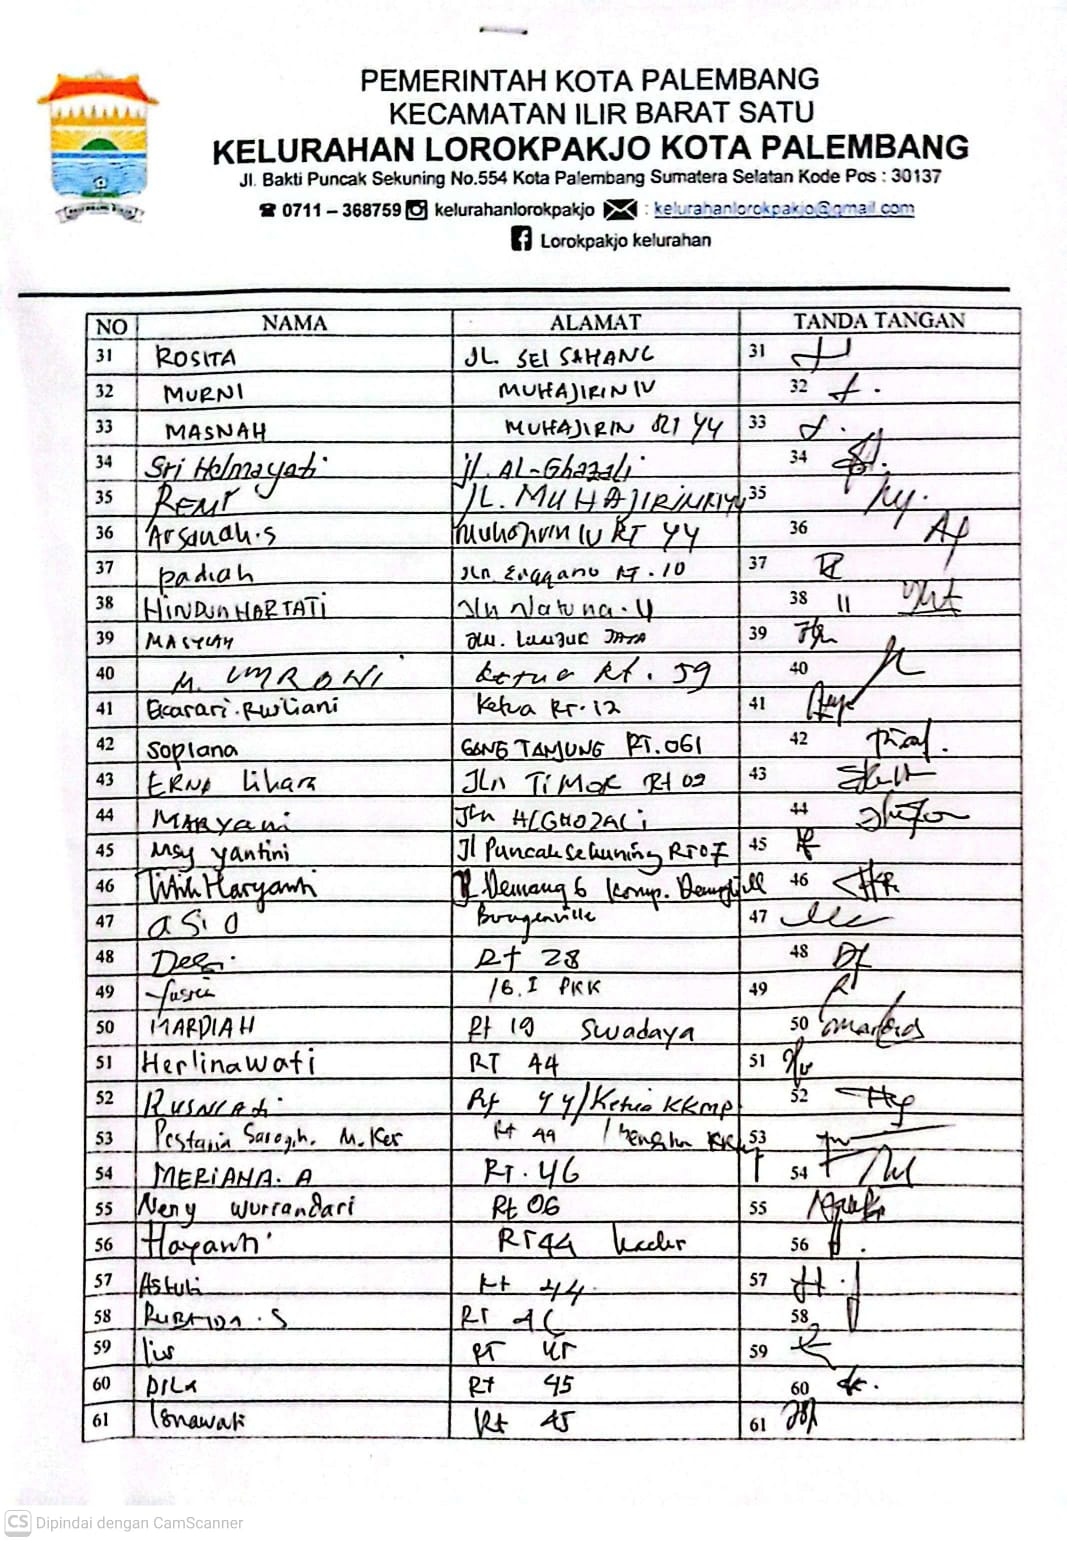 PEMERINTAH KOTA PALEMBANG
KECAMATAN ILIR BARAT SATU
KELURAHAN LOROKPAKJO KOTA PALEMBANG
Jl. Bakti Puncak Sekuning No.554 Kota Palembang Sumatera Selatan Kode Pos : 30137
☎ 0711 – 368759 kelurahanlorokpakjo : kelurahanlorokpakjo@gmail.com
Lorokpakjo kelurahan
NO NAMA ALAMAT TANDA TANGAN
31 ROSITA JL. SEI SAHANG 31
32 MURNI MUHAJIRIN IV 32
33 MASNAH MUHAJIRIN RT 44 33
34 Sri Helmayati jl. AL-Ghazali 34
35 REMI JL. MUHAJIRIN RT 44 35
36 Arsanah.S Muhajirin IV RT 44 36
37 padiah Jln. Enggano RT.10 37
38 HINDUN HARTATI Jln Natuna 38
39 39
40 M. UMRONI Ketua Rt. 59 40
41 Ekarari.Rwiliani Ketua RT.12 41
42 Sopiana GANG TANJUNG RT.061 42
43 ERNA Jln TIMOR Rt 02 43
44 MARyani Jln 44
45 Msy yantini Jl Puncak Sekuning RT07 45
46 Titik Haryanti Jl. Demang 6 Komp. 46
47 Bougenville 47
48 Rt 28 48
49 PKK 49
50 MARDIAH Rt 19 Swadaya 50
51 Herlinawati RT 44 51
52 Rt 44/Ketua KKMP 52
53 Rt 44 53
54 MERIANA. A RT. 46 54
55 Neny Wurrandari Rt 06 55
56 Hayanti RT 44 kader 56
57 Astuti Rt 44 57
58 RT 58
59 lis RT 45 59
60 DILA Rt 45 60
61 Isnawati Rt 45 61
CS Dipindai dengan CamScanner